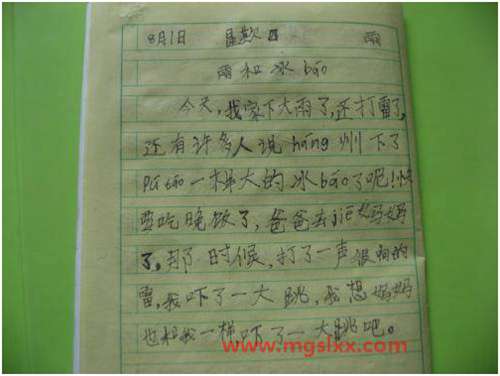 8月1日 星期 雨
雨和冰báo
今天,我家下大雨了,还打雷了,
还有许多人说háng州下了
pú táo一样大的冰báo了呢!快
要吃晚饭了,爸爸去jiē妈妈
了,那时候,打了一声很响的
雷,我吓了一大跳,我想妈妈
也和我一样吓了一大跳吧。
www.mgslxx.com